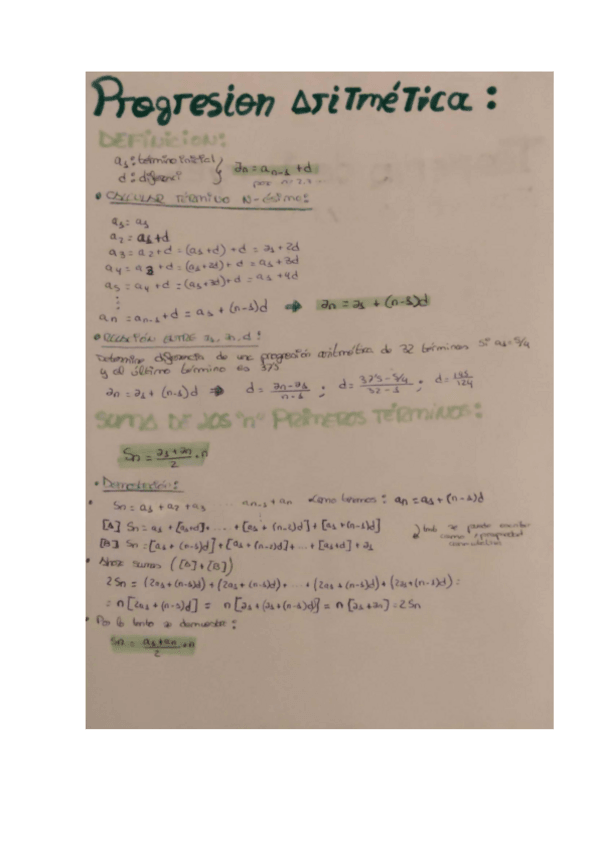 Progresion Aritmética :
DEFINICION:
a₁: término inicial
d: diferenci } an = an-1 + d
• CALCULAR TÉRMINO N-ésimo:
a₁ = a₁
a₂ = a₁ + d
a₃ = a₂ + d = (a₁+d) + d = a₁ + 2d
a₄ = a3 + d = (a₁+2d) + d = a₁ + 3d
a₅ = a₄ + d = (a₁+3d) + d = a₁ + 4d
⋮
an = an-1 + d = a₁ + (n-1)d ⇒ an = a₁ + (n-1)d
• RELACIÓN ENTRE a₁, an, d :
Determine diferencia de una progresión aritmética de 32 términos si a₁ = 5/4
y el último término es 375
an = a₁ + (n-1)d ⇒ d = an - a₁ / n-1 ; d = 375 - 5/4 / 32-1 ; d =
SUMA DE LOS "n" PRIMEROS TÉRMINOS:
Sn = a₁+an / 2 · n
• Demostración:
• Sn = a₁ + a₂ + a₃ ... an-1 + an Como tenemos: an = a₁ + (n-1)d
[A] Sn = a₁ + [a₁+d] + ..... + [a₁ + (n-2)d] + [a₁ + (n-1)d]
[B] Sn = [a₁ + (n-1)d] + [a₁ + (n-2)d] + ... + [a₁+d] + a₁
se puede escribir
como propiedad
conmutativa
• Ahora sumas ([A] + [B])
2Sn = (2a₁ + (n-1)d) + (2a₁ + (n-1)d) + ... + (2a₁ + (n-1)d) + (2a₁ + (n-1)d) =
= n [2a₁ + (n-1)d] = n [a₁ + (a₁ + (n-1)d)] = n [a₁ + an] = 2Sn
• Por lo tanto se demuestra :
Sn = a₁+an / 2 · n